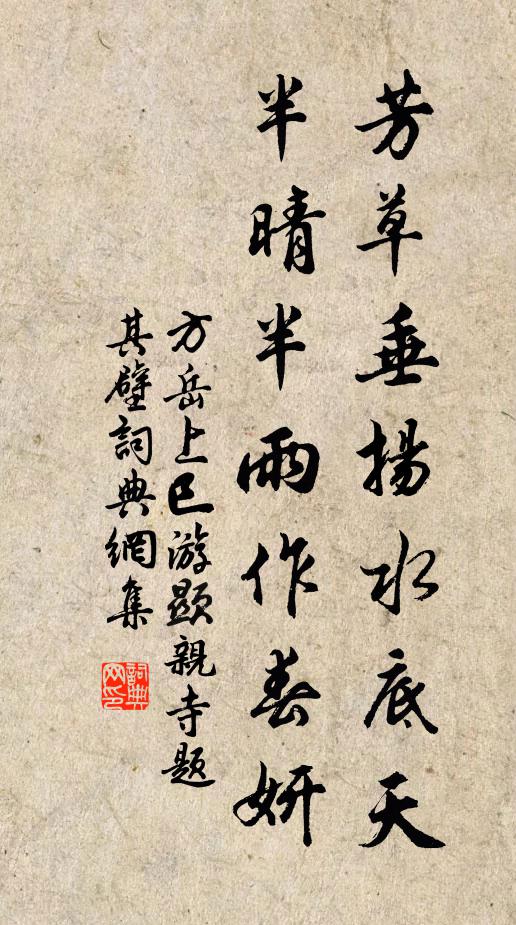 芳草垂揚水底天
半晴半雨作春妍
方岳上巳游顯親寺題
其壁詞典網集
詞典
网印